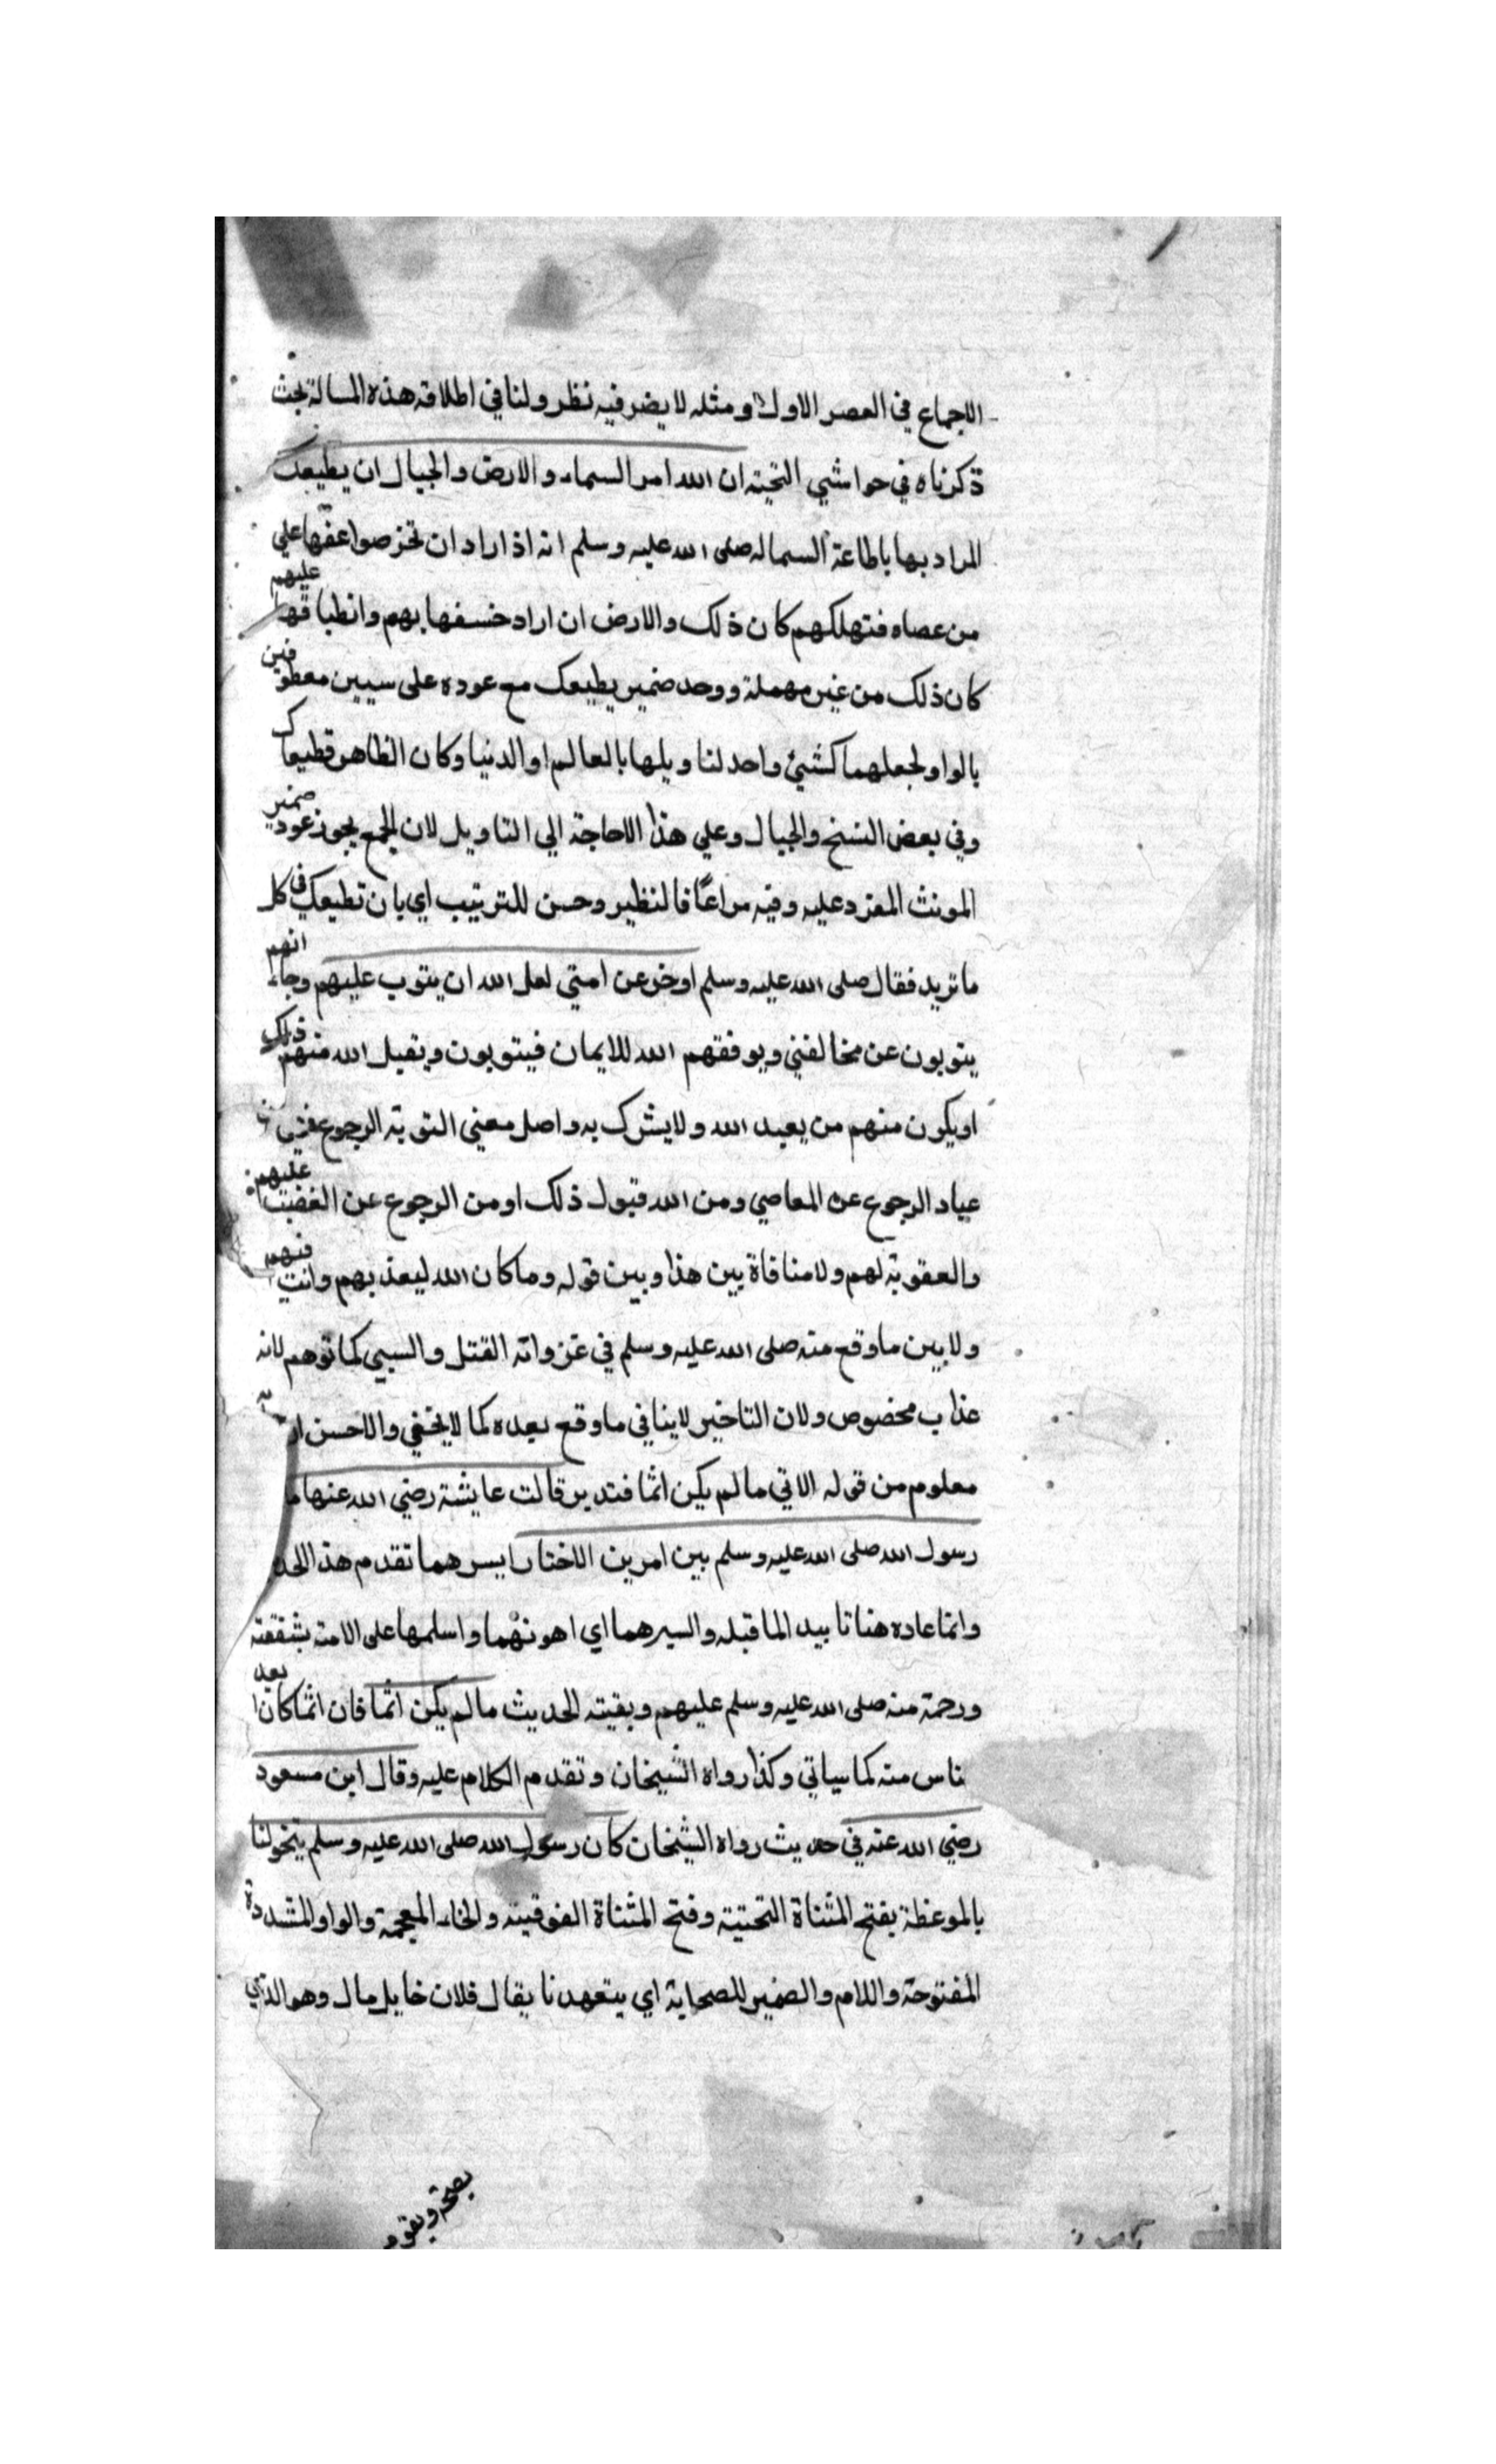 الاجماع في العصر الاول ومثله لا يضر فيه نظر ولنا في اطلاقه هذه المسالة بحث
ذكرناه في حواشي التحتية ان الله امر السماء والارض والجبال ان يطيعك
المراد بها باطاعة السما له صلى الله عليه وسلم انه اذا راد ان تخر صواعقها علي
من عصاه فتهلكهم كان ذلك والارض ان اراد خسفها بهم وانطباقها عليهم
كان ذلك من غير مهملة ووحد ضمير يطيعك مع عوده على سيين معطوفين
بالواو لجعلهما كشئ واحد لتاويلها بالعالم او الدنيا وكان الظاهر تطيعاك
وفي بعض النسخ والجبال وعلي هذا لاحاجة الي التاويل لان الجمع يجوز عود ضمير
المونث المفرد عليه وفيه مراعاة النظير وحسن للترتيب اي بان تطيعك في كل
ما تريد فقال صلى الله عليه وسلم اوخر عن امتي لعل الله ان يتوب عليهم وجاء انهم
يتوبون عن مخالفني ويوفقهم الله للايمان فيتوبون ويقبل الله منهم ذلك
او يكون منهم من يعبد الله ولا يشرك به واصل معني التوبة الرجوع
عباد الرجوع عن المعاصي ومن الله قبول ذلك او من الرجوع عن الغضب عليهم
والعقوبة لهم ولا منافاة بين هذا وبين قوله وما كان الله ليعذبهم وانت فيهم
ولا بين ما وقع منه صلى الله عليه وسلم في غزواته القتل والسبي كما توهم لانه
عذاب مخصوص ولان التاخير لا ينافي ما وقع بعده كما لا يخفي والاحسن
معلوم من قوله الاتي ما لم يكن اثما فتدبر قالت عايشة رضي الله عنها ما
رسول الله صلى الله عليه وسلم بين امرين الا اختار ايسرهما تقدم هذا الحد
وانما عاده هنا تاييد الما قبله والسيرهما اي اهونهما واسلمها على الامة بشفقته
ورحمة منه صلى الله عليه وسلم عليهم وبقية الحديث ما لم يكن اثما فان اثما كان ابعد
الناس منه كما سياتي وكذا رواه الشيخان وتقدم الكلام عليه وقال ابن مسعود
رضي الله عنه في حديث رواه الشيخان كان رسول الله صلى الله عليه وسلم يتخولنا
بالموعظة بفتح المثناة التحتية وفتح المثناة الفوقية والخاء المعجمة والواو المشددة
المفتوحة واللام والضمير للصحابة اي يتعهدنا يقال فلان خايل مال وهو الذي